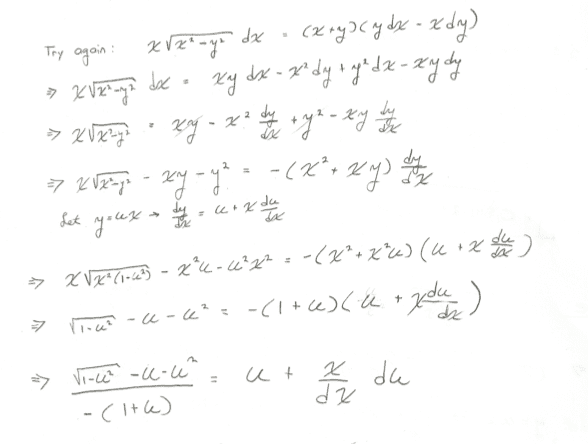 Try again: x√(x²-y²) dx = (x+y)(y dx - x dy)
⇒ x√(x²-y²) dx = xy dx - x² dy + y² dx - xy dy
⇒ x√(x²-y²) = xy - x² dy/dx + y² - xy dy/dx
⇒ x√(x²-y²) - xy - y² = -(x² + xy) dy/dx
Let y=ux → dy/dx = u + x du/dx
⇒ x√(x²(1-u²)) - x²u - u²x² = -(x² + x²u)(u + x du/dx)
⇒ √(1-u²) - u - u² = -(1+u)(u + x du/dx)
⇒ (√(1-u²) - u - u²)/(-(1+u)) = u + x/dx du